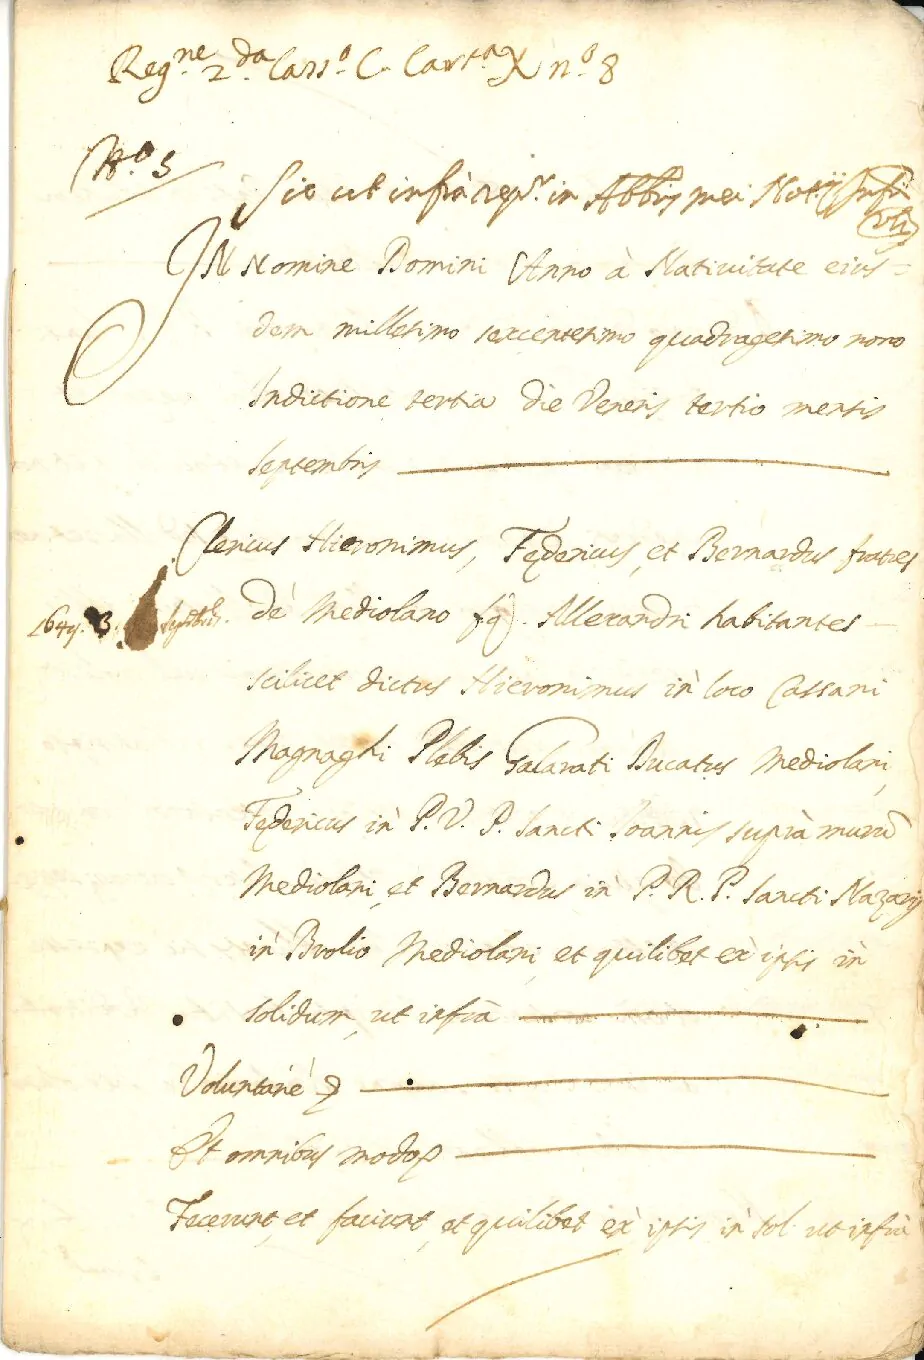 Reg.ne 2.da Cass.o C. Cart.a X n.o 8
N.o 5
Sic ut infrà rep.r in Abb.ijs mei Not.ij Infr.i
IN Nomine Domini Anno à Nativitate eius=
dem millesimo sexcentesimo quadragesimo nono
Indictione tertia die Veneris tertio mensis
septembris
Clericus Hieronimus, Federicus, et Bernardus fratres
1649. 3. Septbris. de Mediolano f.q. Allexandri habitantes
scilicet dictus Hieronimus in loco Cassani
Magnaghi Plebis Galarati Ducatus Mediolani,
Federicus in P. V. P. Sancti Ioannis suprà murũ
Mediolani, et Bernardus in P. R. P. Sancti Nazarij
in Brolio Mediolani, et quilibet ex ipsis in
solidum, ut infrà
Voluntariè
Et omnibus modis
Fecerunt, et faciunt, et quilibet ex ipsis in sol. ut infrà